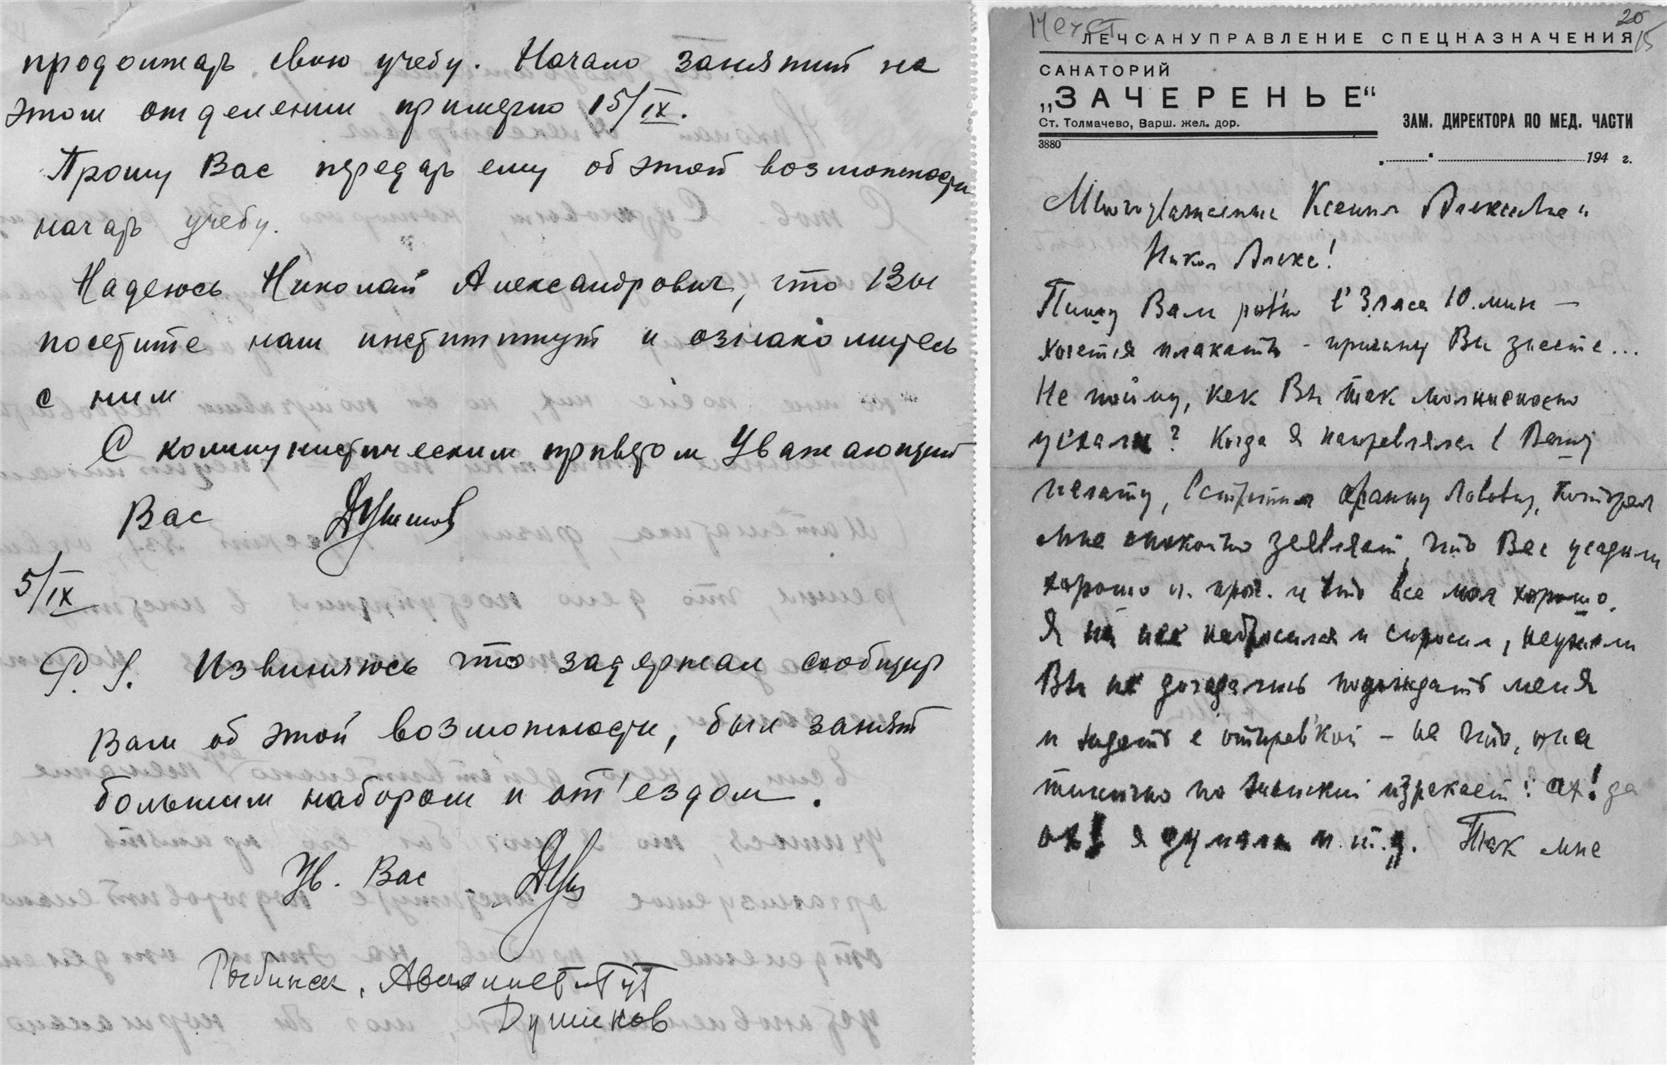 продолжать свою учебу. Начало занятий на
этом отделении примерно 15/IX.
Прошу Вас передать ему об этой возможности
начать учебу.
Надеюсь Николай Александрович, что Вы
посетите наш институт и ознакомитесь
с ним
С коммунистическим приветом Уважающий
Вас
5/IX
P. S. Извиняюсь что задержал сообщить
Вам об этой возможности, был занят
большим набором и от'ездом.
Ув. Вас
Рыбинск, Авиаинститут
Душинов
20
15
ЛЕЧСАНУПРАВЛЕНИЕ СПЕЦНАЗНАЧЕНИЯ
САНАТОРИЙ
„ЗАЧЕРЕНЬЕ“
Ст. Толмачево, Варш. жел. дор.
3880
ЗАМ. ДИРЕКТОРА ПО МЕД. ЧАСТИ
„ “ 194 г.
Многоуважаемые Ксения и
Никол Алекс!
Пишу Вам ровно в 3 часа 10 мин —
хочется плакать - причину Вы знаете...
Не пойму, как Вы так молниеносно
уехали? Когда я направлялся в Вашу
палату, встретил которая
мне спокойно заявляет, что Вас усадили
хорошо и проч. и что все хорошо.
Я на нее набросился и спросил, неужели
Вы не догадались подождать меня
и с отправкой - на что, она
типично по женски изрекает: ах! да
ах! я думала и.т.д. Так мне